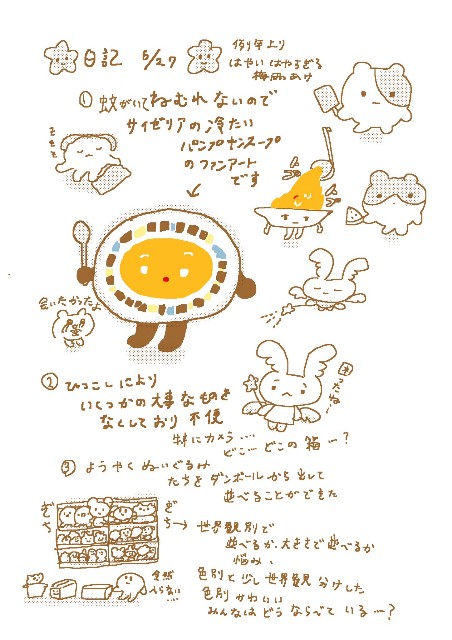 日記 5/27
例年より
はやい はやすぎる
梅雨あけ
① 蚊がいてねむれないので
サイゼリアの冷たい
パンプキンスープ
のファンアート
です
会いたかったよ
困ったね〜
② ひっこしにより
いくつかの大事なものを
なくしており 不便
特にカメラ…
どこ… どこの箱…?
③ ようやくぬいぐるみ
たちをダンボールから出して
並べることができた
ぎち
ぎち
→ 世界観別で
並べるか、大きさで並べるか
悩み、
色別と少し世界観分けした
色別かわいい
みんなはどうならべている…?
全然
入らない